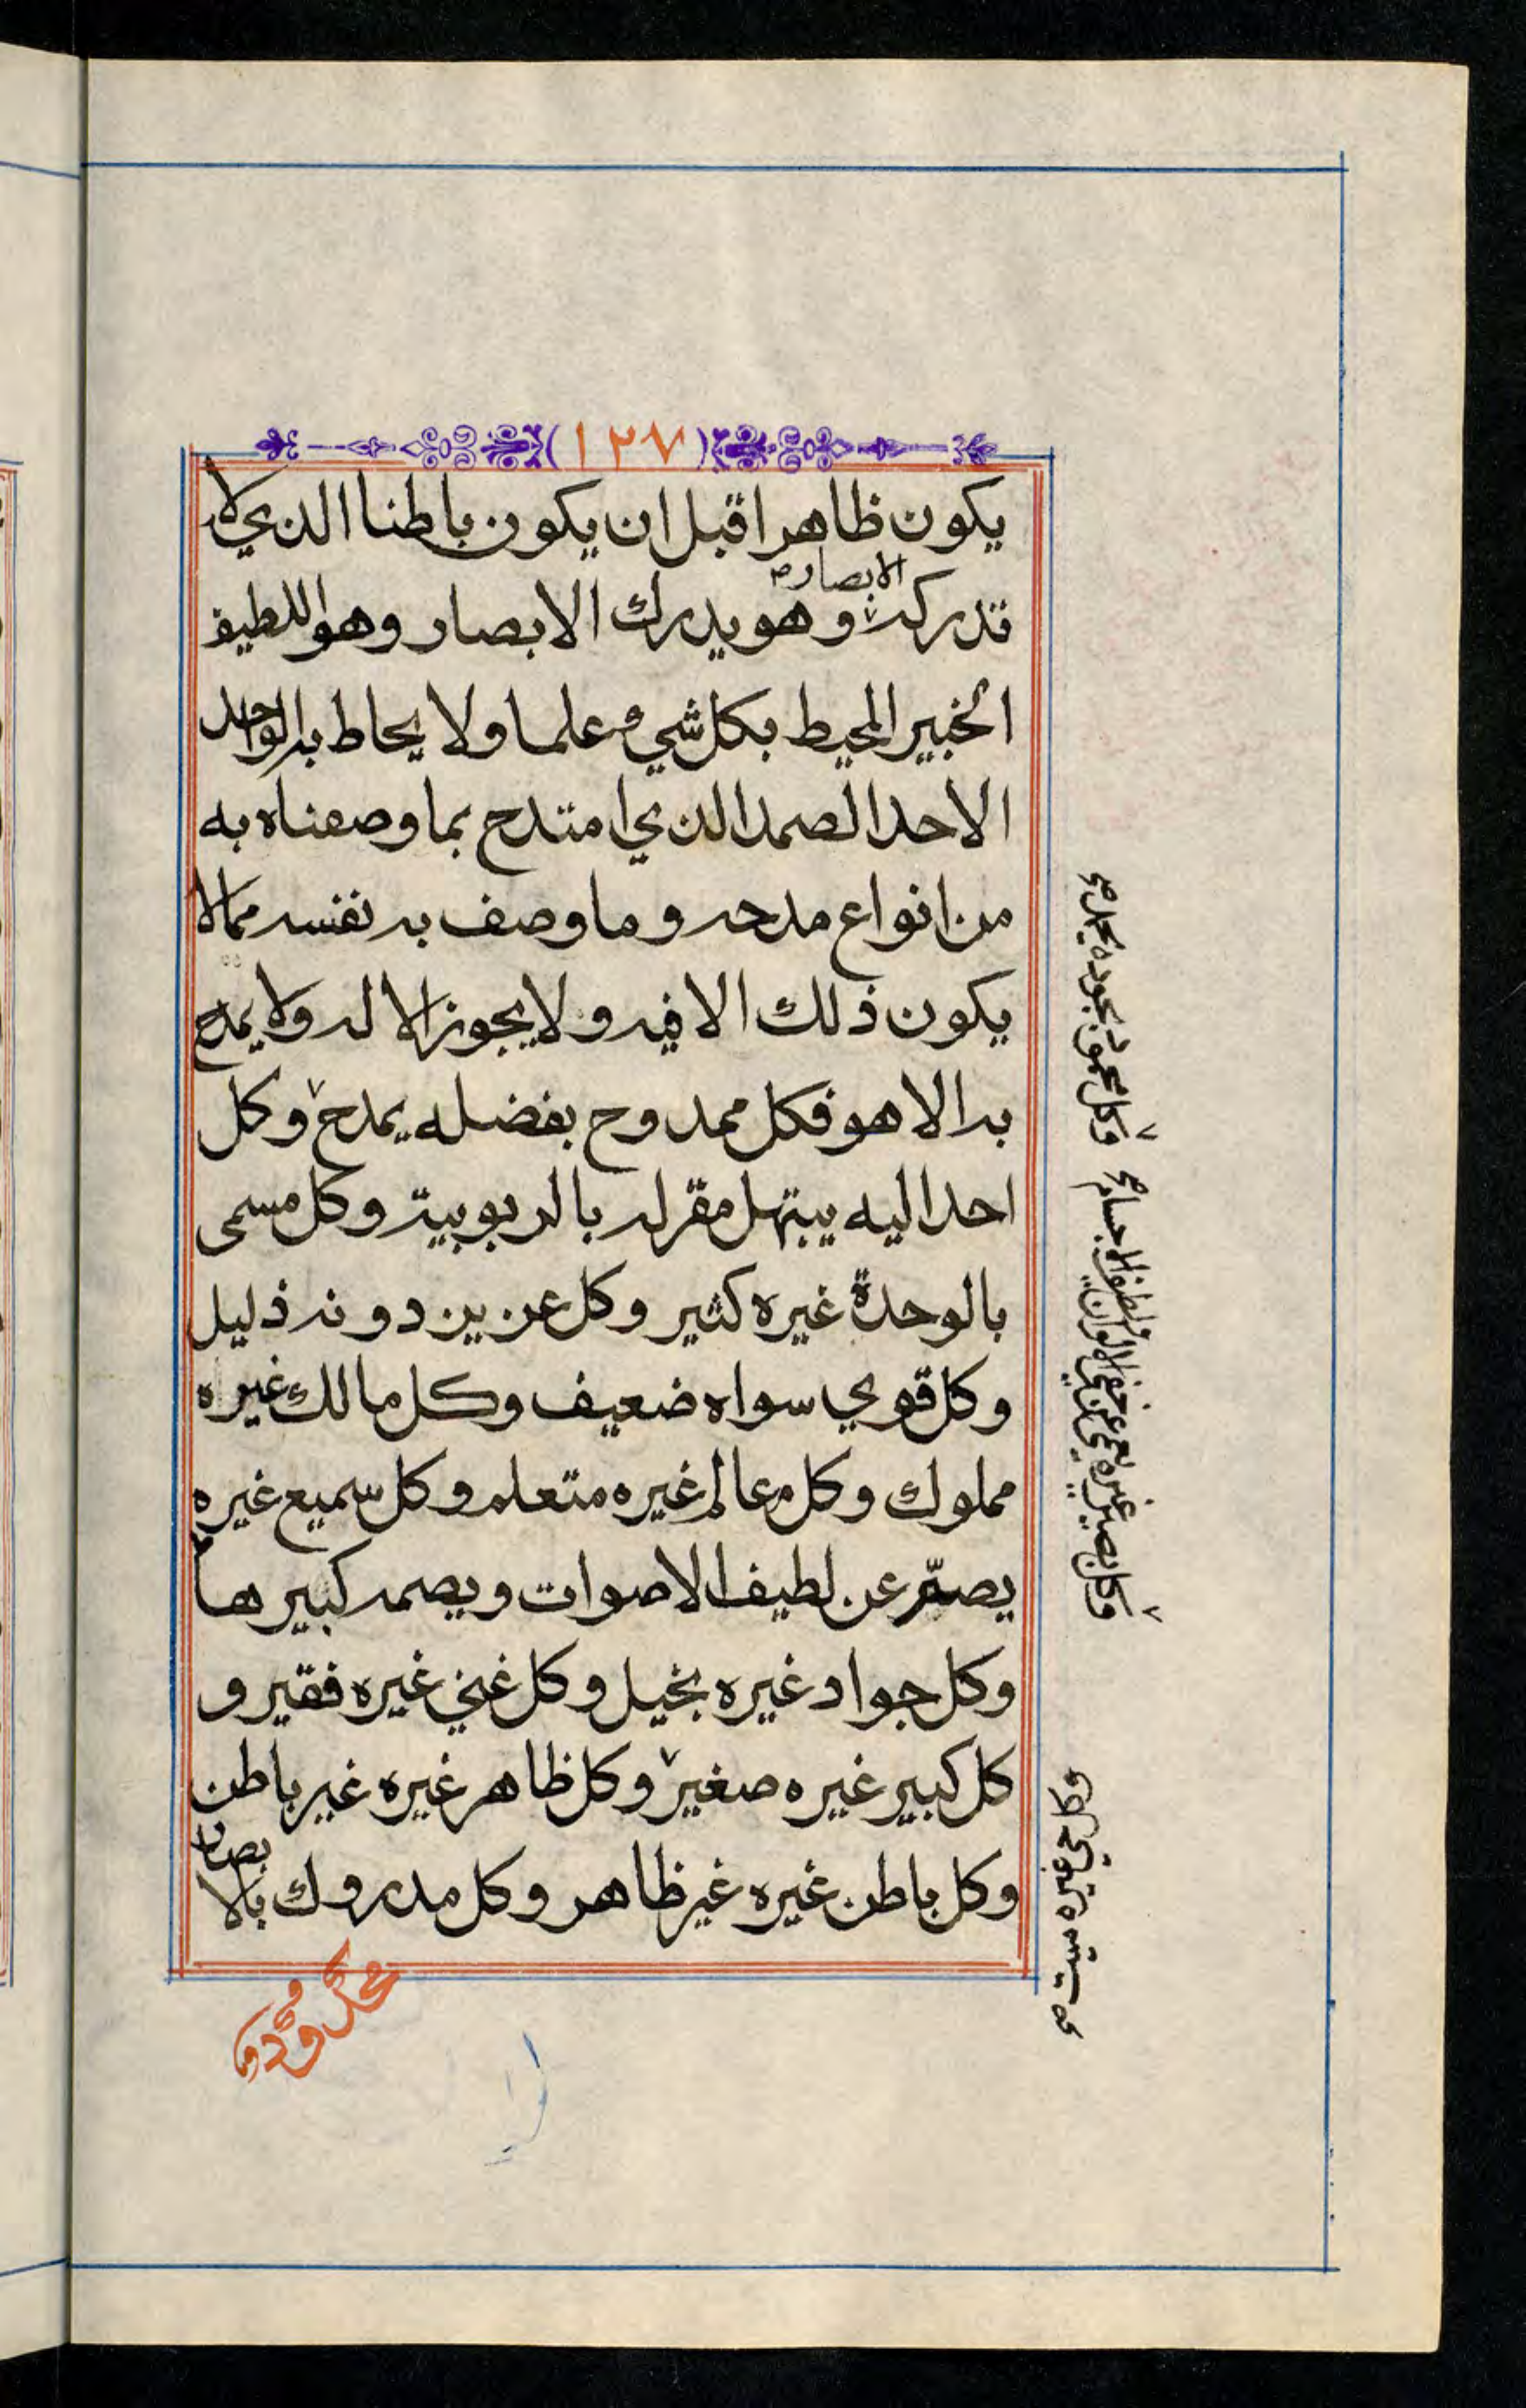 (١٢٧)
يكون ظاهرا قبل ان يكون باطنا الذي لا
الابصار
تدركه وهو يدرك الابصار وهو اللطيف
الخبير المحيط بكل شيء علما ولا يحاط به الواحد
الاحد الصمد الذي امتدح بما وصفناه به
من انواع مدحه وما وصف به نفسه مما لا
يكون ذلك الا فيه ولا يجوز الا له ولا يمدح
به الا هو فكل ممدوح بفضله يمدح وكل
احد اليه يبتهل مقر له بالربوبية وكل مسمى
بالوحدة غيره كثير وكل عزيز دونه ذليل
وكل قوي سواه ضعيف وكل مالك غيره
مملوك وكل عالم غيره متعلم وكل سميع غيره
يصم عن لطيف الاصوات ويصمه كبيرها
وكل جواد غيره بخيل وكل غني غيره فقير و
كل كبير غيره صغير وكل ظاهر غيره غير باطن
وكل باطن غيره غير ظاهر وكل مدروك بالا
بصار
وكل محمود بجوده يحمد صح
وكل بصير غيره يعمى عن خفي الالوان
ولطف الاجسام صح
وكل حي غيره ميت صح
محدود